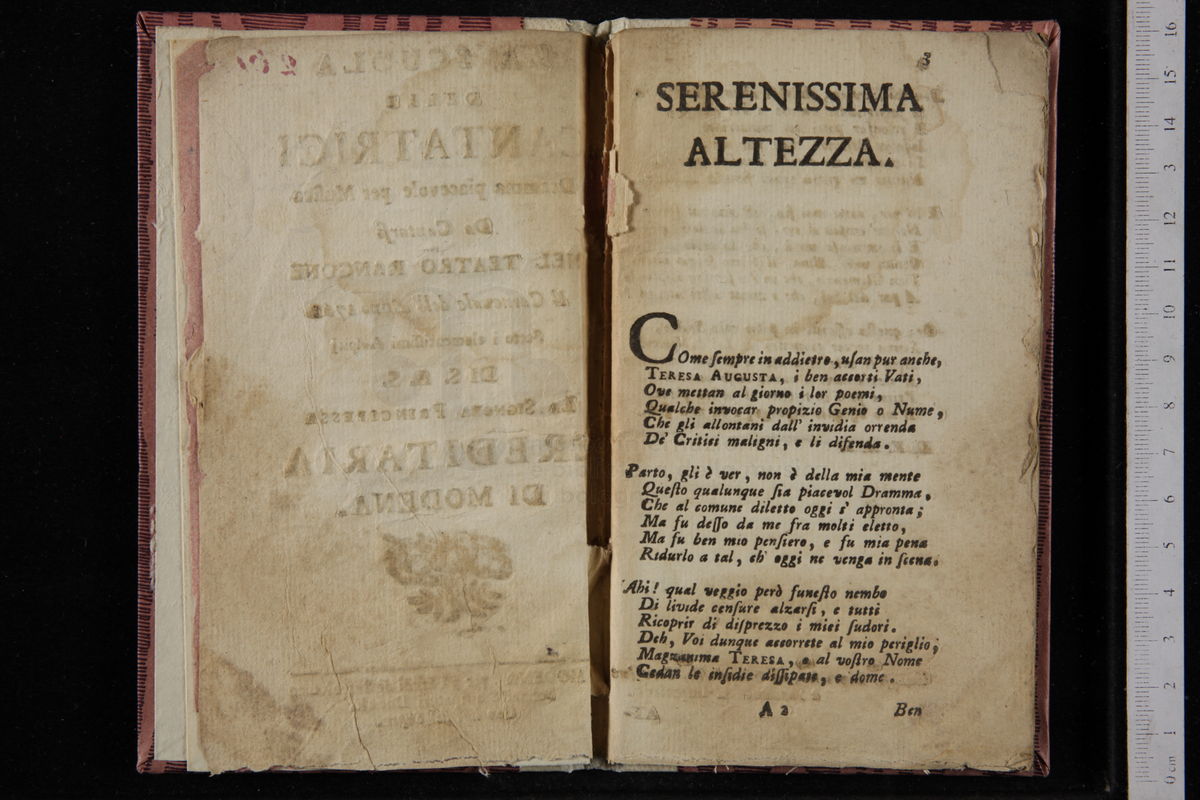 3
SERENISSIMA
ALTEZZA.
COme ſempre in addietro, uſan pur anche,
TERESA AUGUSTA, i ben accorti Vati,
Ove mettan al giorno i lor poemi,
Qualche invocar propizio Genio o Nume,
Che gli allontani dall' invidia orrenda
De' Critici maligni, e li difenda.
Parto, gli è ver, non è della mia mente
Queſto qualunque ſia piacevol Dramma,
Che al comune diletto oggi s' appronta;
Ma fu deſſo da me fra molti eletto,
Ma fu ben mio penſiero, e fu mia pena
Ridurlo a tal, ch' oggi ne venga in ſcena.
Ahi! qual veggio però funeſto nembo
Di livide cenſure alzarſi, e tutti
Ricoprir di diſprezzo i miei ſudori.
Deh, Voi dunque accorrete al mio periglio;
Magnanima TERESA, e al voſtro Nome
Cedan le inſidie diſſipate, e dome.
A 2
Ben